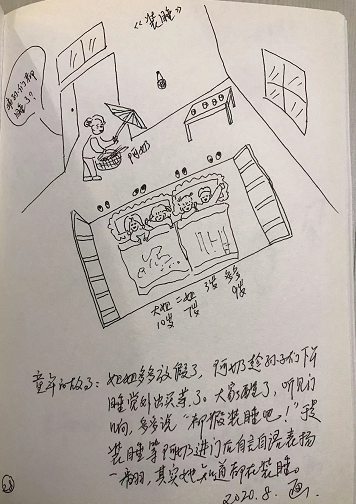 《装睡》
孙子们都
睡了?
阿奶
大姐 二姐
10岁 7岁
3岁
9岁
童年的故事：姐姐多多放假了，阿奶趁孙子们下午
睡觉外出买菜了。大家醒了，听见门
响，多多说“都假装睡吧！”
装睡等阿奶进门后自言自语表扬
一番，其实她知道都在装睡。
2020.8.